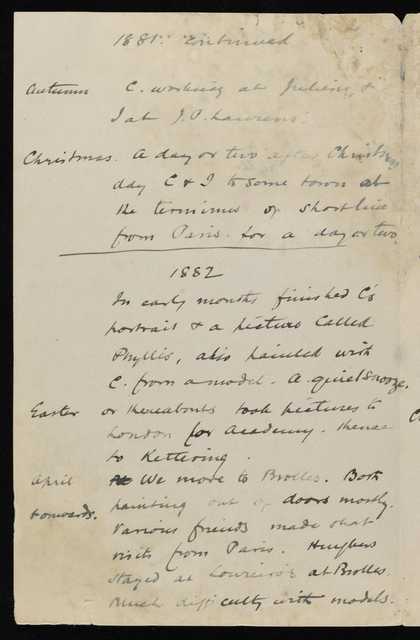 1881. Continued
Autumn C. working at Julien's, &
I at J.P. Laurens.
Christmas. A day or two after Christmas
day C & I to some town at
the terminus of short line
from Paris. for a day or two.
1882
In early months finished C's
portrait & a picture called
Phyllis, also painted with
C. from a model. A quiet snooze.
Easter or thereabouts took pictures to
London for Academy. thence
to Kettering.
April We move to Brolles. Both
& onwards. painting out of doors mostly.
Various friends made short
visits from Paris. Hughes
stayed at Loureiro's at Brolles
Much difficulty with models.